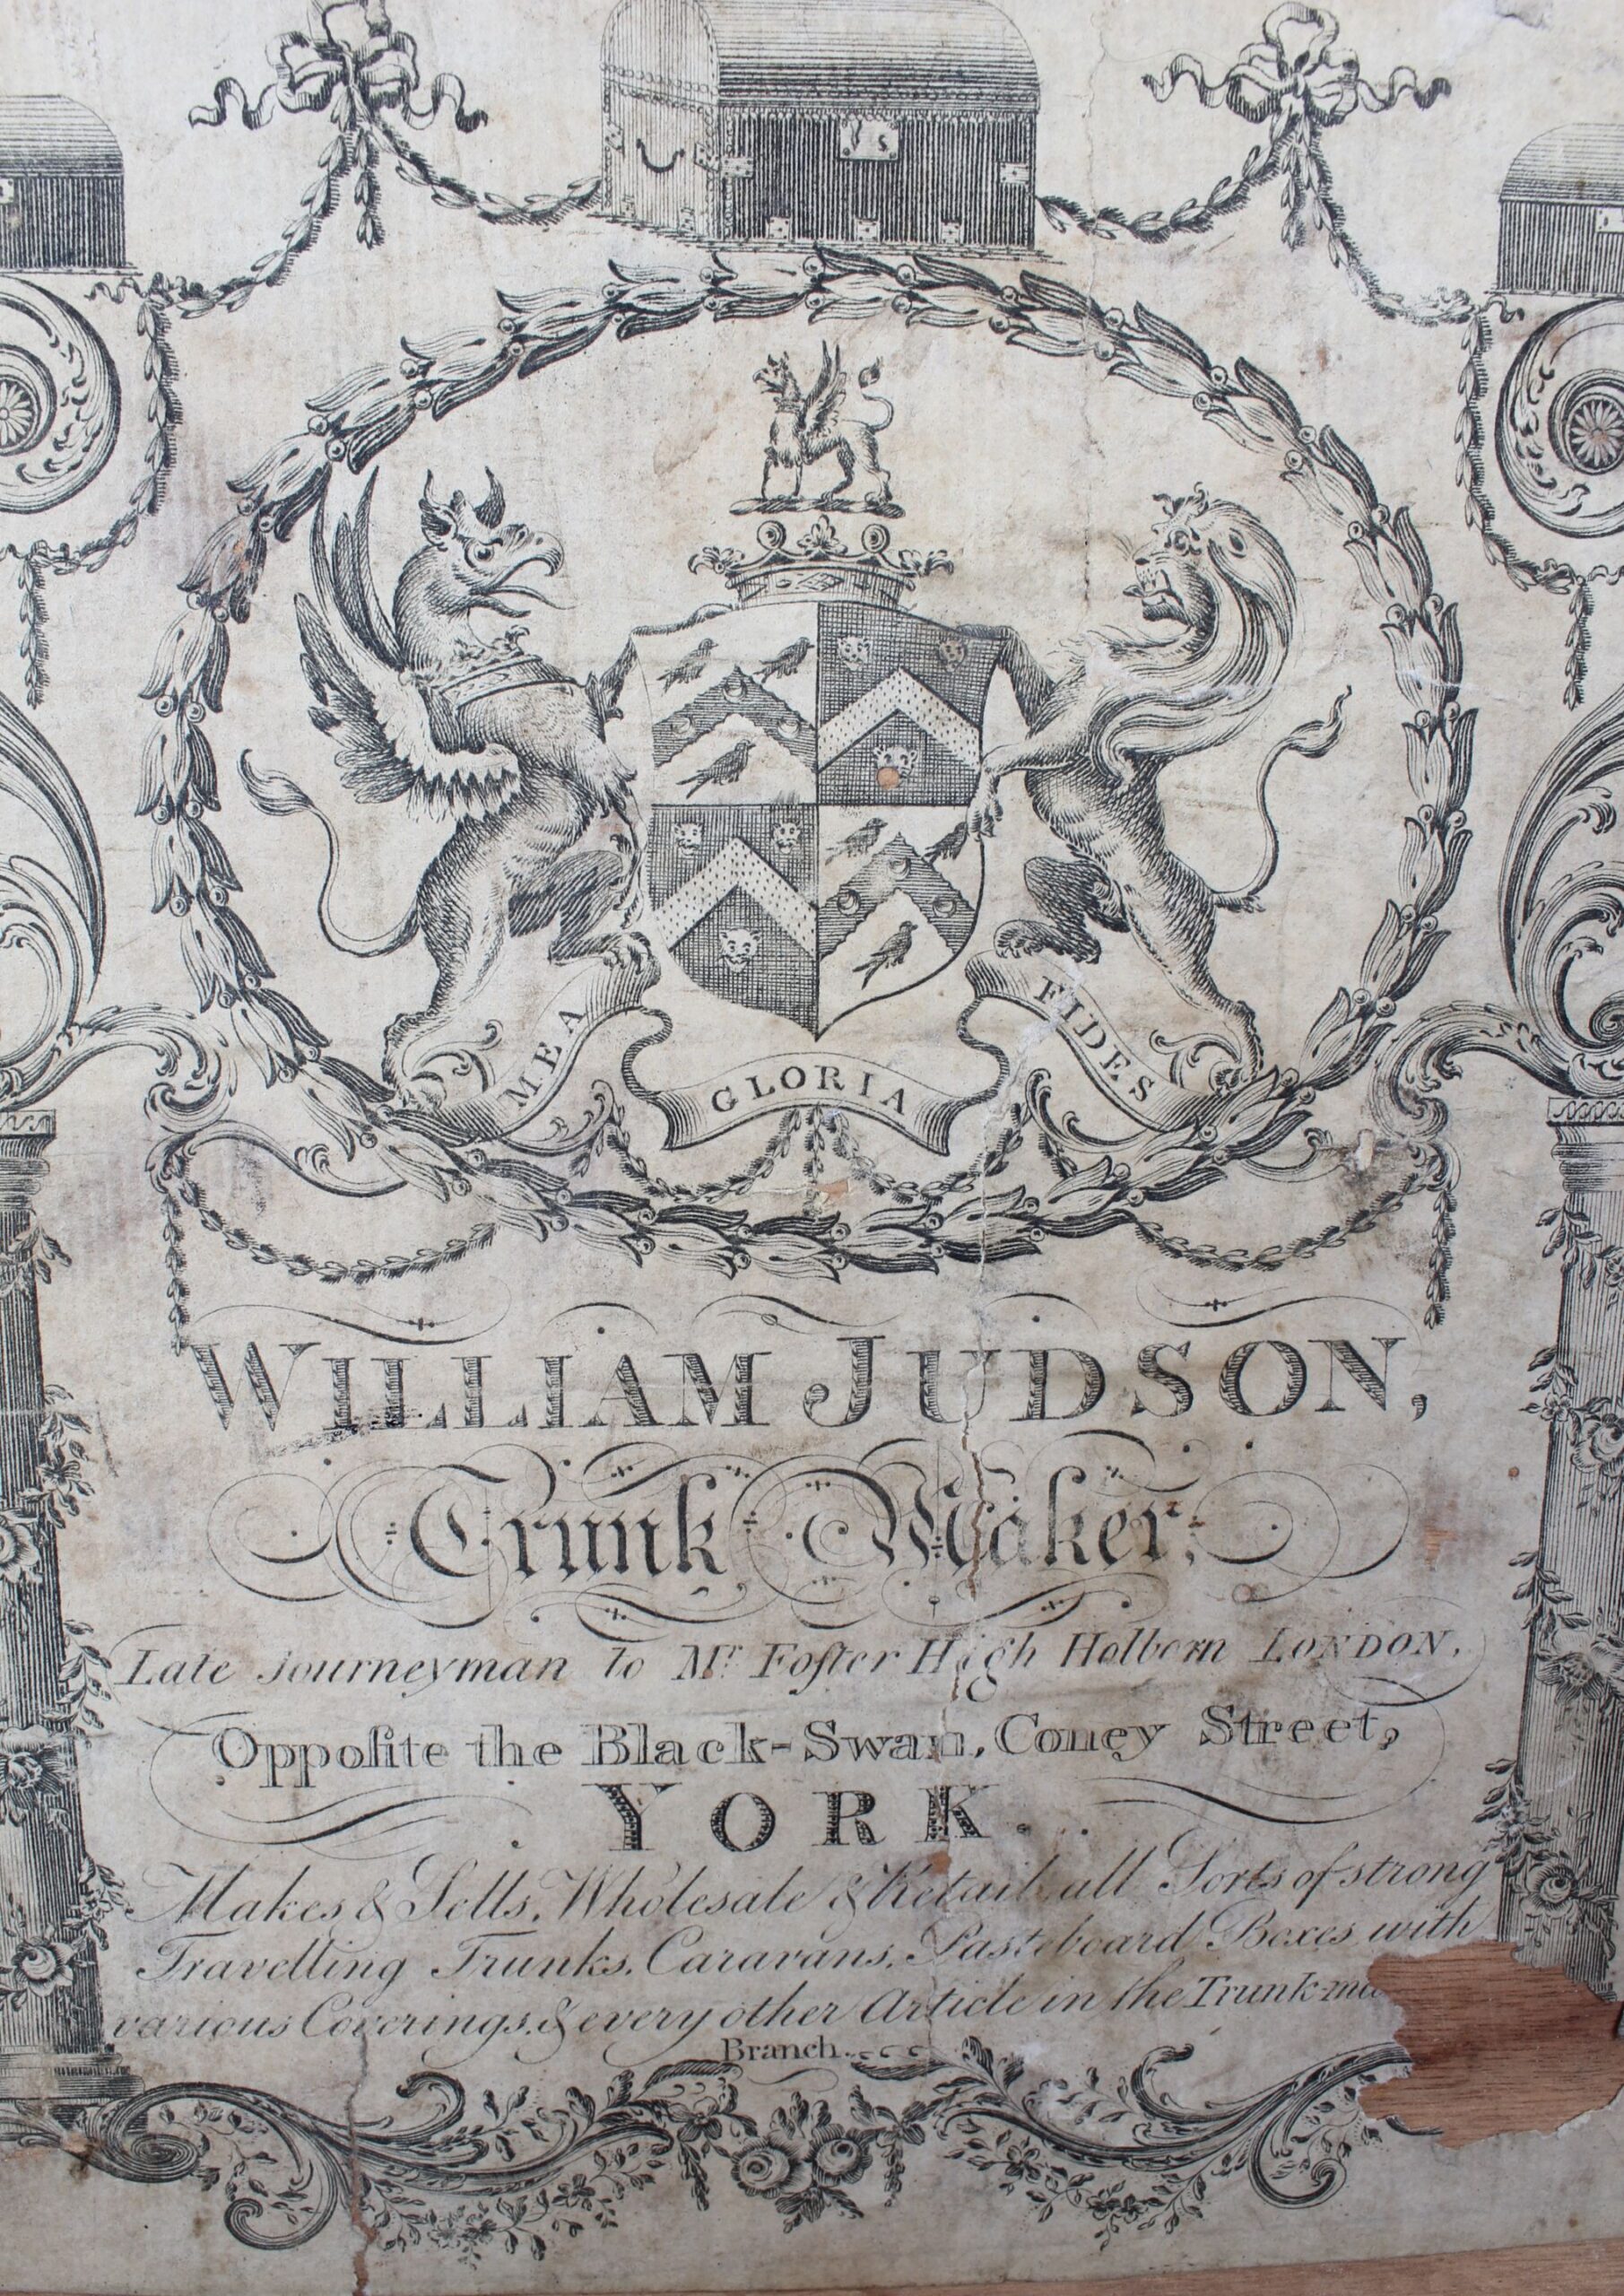 MEA
GLORIA
FIDES
WILLIAM JUDSON,
Trunk Maker,
Late Journeyman to Mr. Foſter High Holborn LONDON,
Oppoſite the Black-Swan, Coney Street,
YORK.
Makes & Sells, Wholesale & Retail all Sorts of strong
Travelling Trunks, Caravans, Pasteboard Boxes with
various Coverings, & every other Article in the Trunk-ma
Branch.